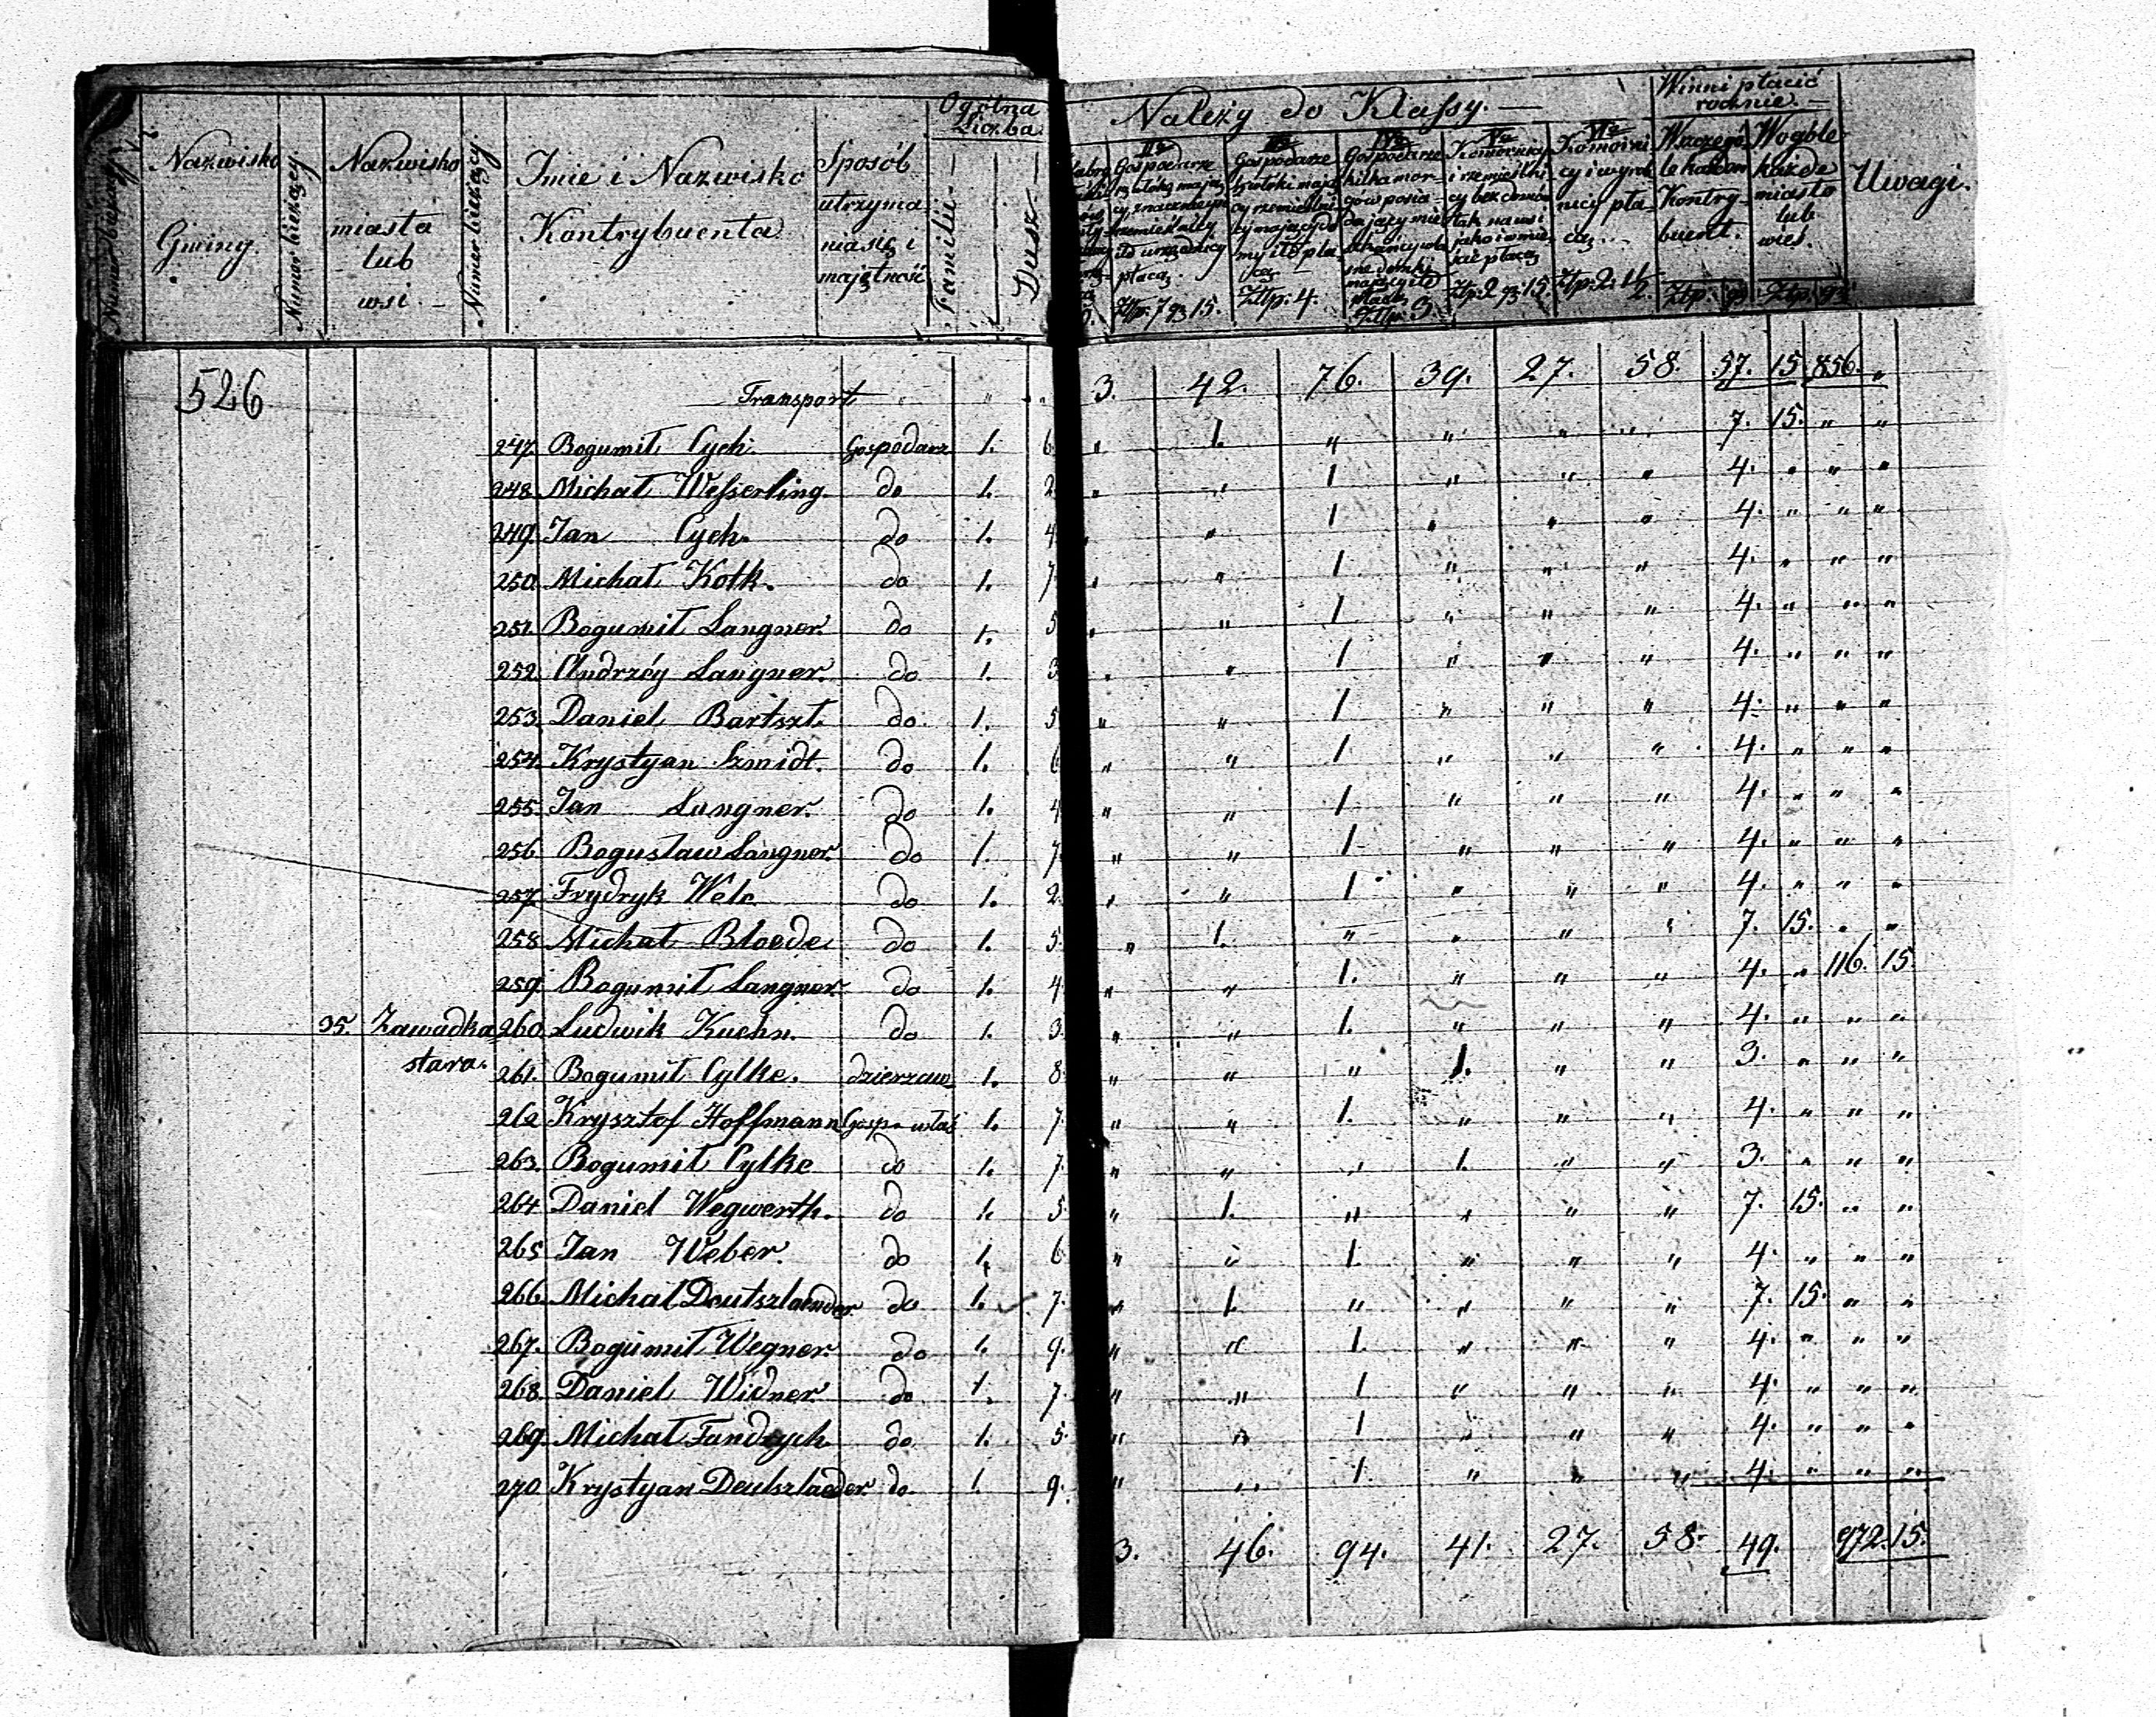 Numer bieżący
Nazwisko
Gminy.
Numer bieżący.
Nazwisko
miasta
lub
wsi.
Numer bieżący
Imie i Nazwisko
Kontrybuenta
Sposób
utrzyma
nia się i
majętność
Ogólna
Liczba
Familii
Dusz
Należy do Klassy.
IIa
Gospodarze
płacą.
Ztp: 7 gr 15.
IIIa
Gospodarze
Ztp: 4.
IVa
Gospodarze
kilka mor-
gów posia-
Ztp: 3.
Va
Komornicy
i rzemieślni
cy bez domów
tak na wsi
jako i w mie
ście płacą
Ztp: 2 gr: 15.
VIa
Komorni
cy i wyrob
nicy pła-
cą.
Ztp: 2:
Winni płacić
rocznie.
Wszczegó
le każden
Kontry-
buent.
Ztp: gr
Wogóle
każde
miasto
lub
wieś.
Ztp: gr
Uwagi.
526 Transport " " 3. 42. 76. 39. 27. 58. 57. 15. 856. "
247. Bogumił Cych. Gospodarz 1. 6. " 1. " " " " 7. 15. " "
248. Michał Wesserling. do 1. 2. " " 1 " " " 4. " " "
249. Jan Cych. do 1. 4. " " 1 " " " 4. " " "
250. Michał Kotk. do 1. 7. " " 1 " " " 4. " " "
251. Bogumił Langner. do 1. 5. " " 1 " " " 4. " " "
252. Andrzéy Langner. do 1. 3. " " 1 " " " 4. " " "
253. Daniel Bartszt. do 1. 5. " " 1 " " " 4. " " "
254. Krystyan Szmidt. do 1. 6. " " 1 " " " 4. " " "
255. Jan Langner. do 1. 4. " " 1 " " " 4. " " "
256. Bogusław Langner. do 1. 7. " " 1 " " " 4. " " "
257. Frydryk Welc. do 1. 2. " " 1 " " " 4. " " "
258. Michał Bloede do 1. 5. " 1. " " " " 7. 15. " "
259. Bogumił Langner. do 1. 4. " " 1. " " " 4. " 116. 15.
35. Zawadka 260. Ludwik Kuehn. do 1. 3. " " 1. " " " 4. " " "
stara. 261. Bogumił Cylke. dzierzaw. 1. 8. " " " 1. " " 3. " " "
262. Krysztof Hoffmann Gosp. właś 1. 7. " " 1. " " " 4. " " "
263. Bogumił Cylke do 1. 7. " " " 1. " " 3. " " "
264. Daniel Wegwerth. do 1. 5. " 1. " " " " 7. 15. " "
265. Jan Weber. do 1. 6. " " 1. " " " 4. " " "
266. Michał Deutszlaender do 1. 7. " 1. " " " " 7. 15. " "
267. Bogumił Wegner. do 1. 9. " " 1. " " " 4. " " "
268. Daniel Widner do 1. 7. " " 1 " " " 4. " " "
269. Michał Fandrych do 1. 5. " " 1 " " " 4. " " "
270. Krystyan Deutszlaeder. do 1. 9. " " 1. " " " 4. " " "
3. 46. 94. 41. 27. 58. 49. 972. 15.